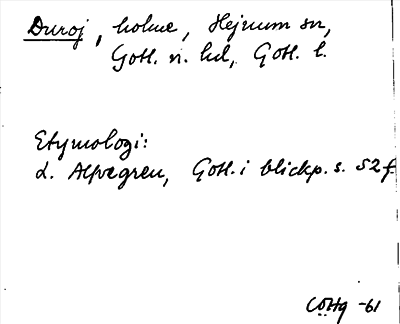 Duroj, holme, Hejnum sn,
Gotl. n. hd, Gotl. l.
Etymologi:
L. Alfvegren, Gotl. i blickp. s. 52 f
CöHg -61